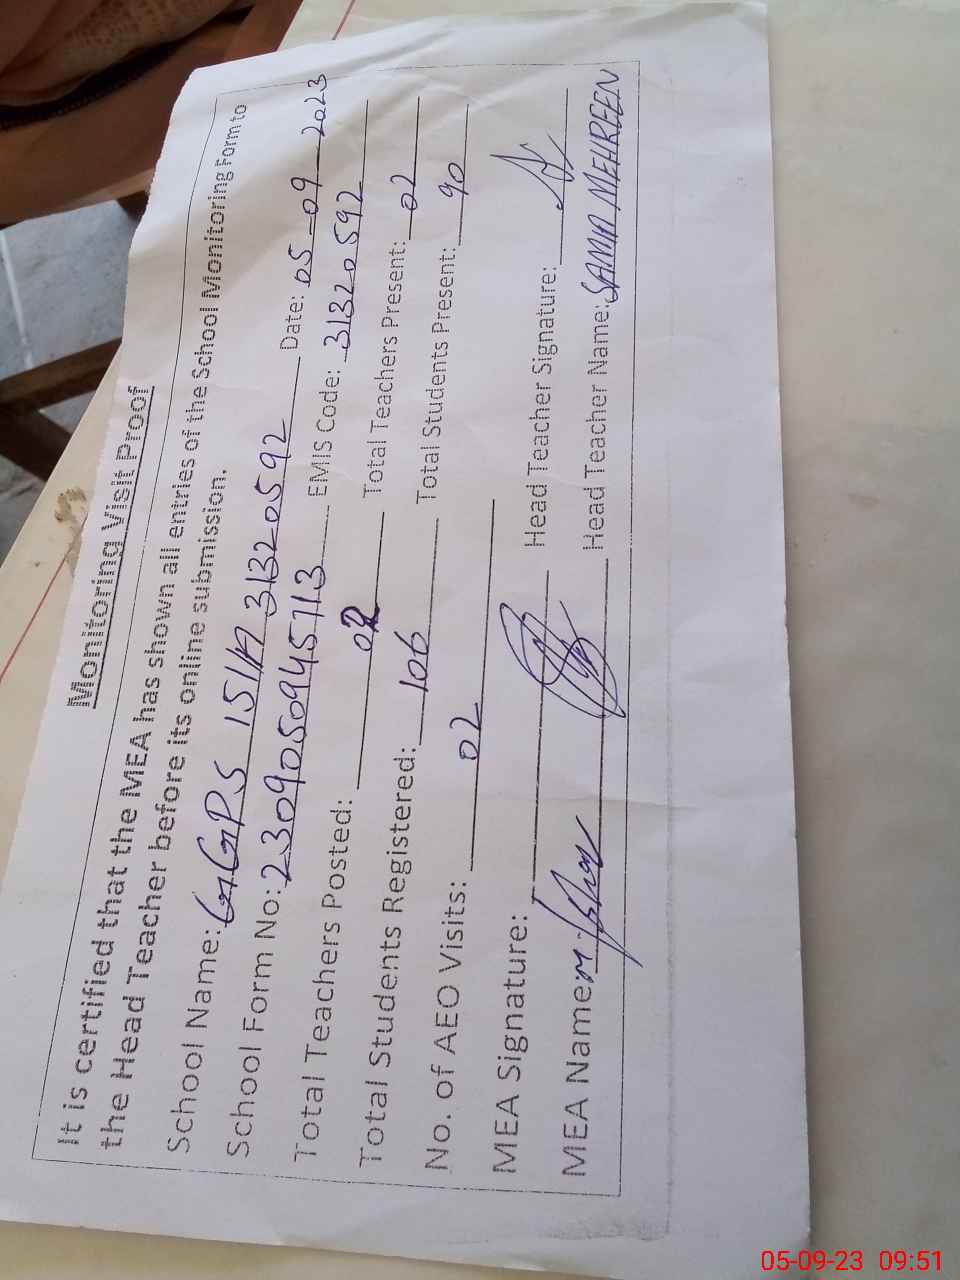 Monitoring Visit Proof
It is certified that the MEA has shown all entries of the School Monitoring Form to
the Head Teacher before its online submission.
School Name: GGPS 151/A 31320592 Date: 05-09-2023
School Form No: 2309050945713 EMIS Code: 31320592
Total Teachers Posted: 02 Total Teachers Present: 02
Total Students Registered: 106 Total Students Present: 90
No. of AEO Visits: 02
MEA Signature: Head Teacher Signature:
MEA Name: M. Head Teacher Name: SAMA MEHREEN
05-09-23 09:51